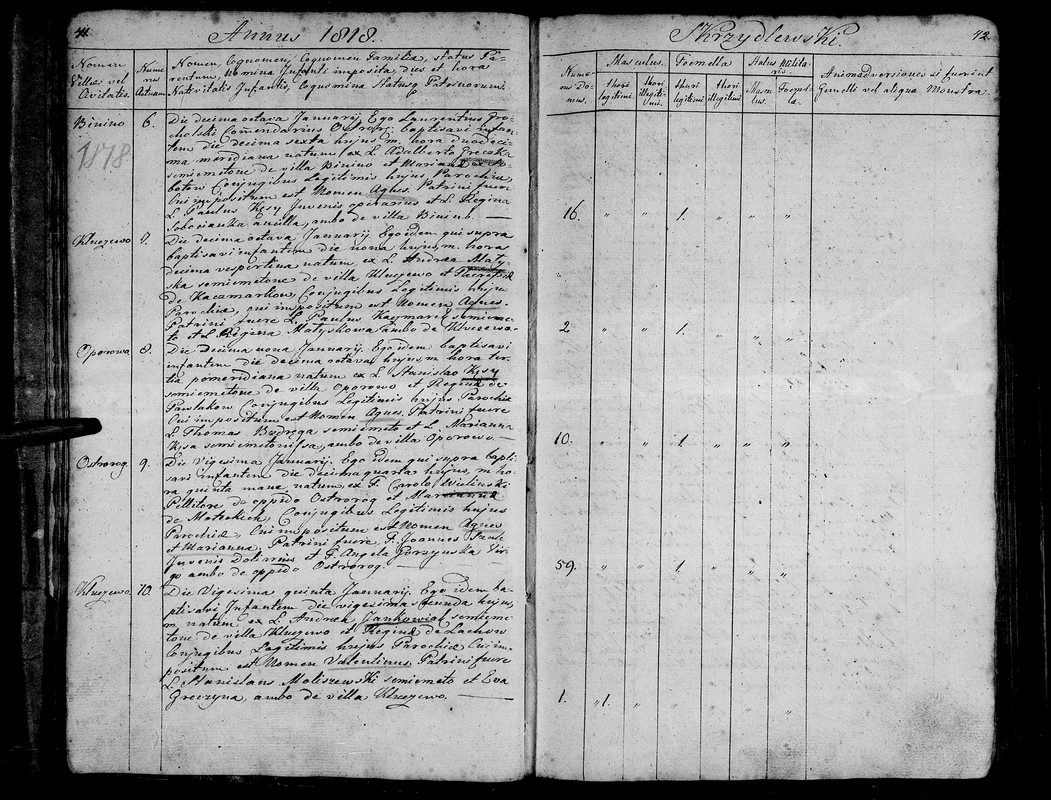 41.
Annus 1818.
Nomen Villæ vel Civitatis.
Nume rus Actuum
Nomen, Cognomen, Cognomen Familiæ, status Pa-
rentum, Nomina Infanti imposita, dies et hora
Nativitatis Infantis, Cognomina Statusq Patrinorum.
Binino 6. Die decima octava Januarij Ego Laurentius Gro-
cholski Comendarius Ostror: baptisavi Infan-
tem die decima sexta hujus m. hora duodeci-
ma meridiana natum ex L. Adalberto Greczka
1818
semicmetone de villa Binino et Marianna
Conjugibus Legitimis hujus Parochiæ,
Cui impositum est Nomen Agnes Patrini fuere
L. Paulus Kęsy Juvenis operarius et L. Regina
Sobocianka ancilla, ambo de villa Binino.
Kluczewo 7. Die decima octava Januarij Ego idem qui supra
baptisavi infantem die nona hujus m. hora
decima vespertina natum ex L. Andrea Maty-
ska semicmetone de villa Kluczewo et
de Kaczmarkow Conjugibus Legitimis hujus
Parochiæ, cui impositum est Nomen Agnes.
Patrini fuere L. Paulus Kaczmarek semicme-
to et L. Regina Matyskowa ambo de Kluczewo.
Oporowo 8. Die Decima nona Januarij Ego idem baptisavi
infantem die decima octava hujus m. hora ter-
tia pomeridiana natum ex L. Stanislao Kęsy
semicmetone de villa Oporowo et Regina de
Pawlakow Conjugibus Legitimis hujus Parochiæ
Cui impositum est Nomen Agnes. Patrini fuere
L. Thomas semicmeto et L. Marianna
Kęsa semicmetonissa, ambo de villa Oporowo.
Ostrorog. 9. Die Vigesima Januarij. Ego idem qui supra bapti-
savi Infantem die decima quarta hujus m. ho-
ra quinta mane natum ex F. Carolo Wielinski
Pellitore de oppido Ostrorog et Marianna
de Conjugibus Legitimis hujus
Parochiæ, Cui impositum est Nomen Agnes
et Marianna. Patrini fuere F. Joannes
Juvenis et F. Angela Gorzynska Vir-
go ambo de oppido Ostrorog.
Kluczewo. 10. Die Vigesima quinta Januarij. Ego idem ba-
ptisavi Infantem die vigesima secunda hujus
m. natum ex L. Andrea Jankowiak semicme-
tone de villa Kluczewo et Regina de Lachow
Conjugibus Legitimis hujus Parochiæ Cui im-
positum est Nomen Valentinus Patrini fuere
L. Stanislaus Maliszewski semicmeto et Eva
Greczyna, ambo de villa Kluczewo.
Skrzydlewski.
42.
Nume- rus Do- mus.
Masculus. Foemella
thori legitimi. thori illegiti- mi. thori legitimi thori illegitimi
Status
Mascu lus. Foemel- la.
Animadversiones si fuerint
Gemelli vel aliqua Monstra.
16. " " 1. " " "
2 " " 1. " " "
10. " " 1. " " "
59. " " 1. " " "
1. 1. " " " " "